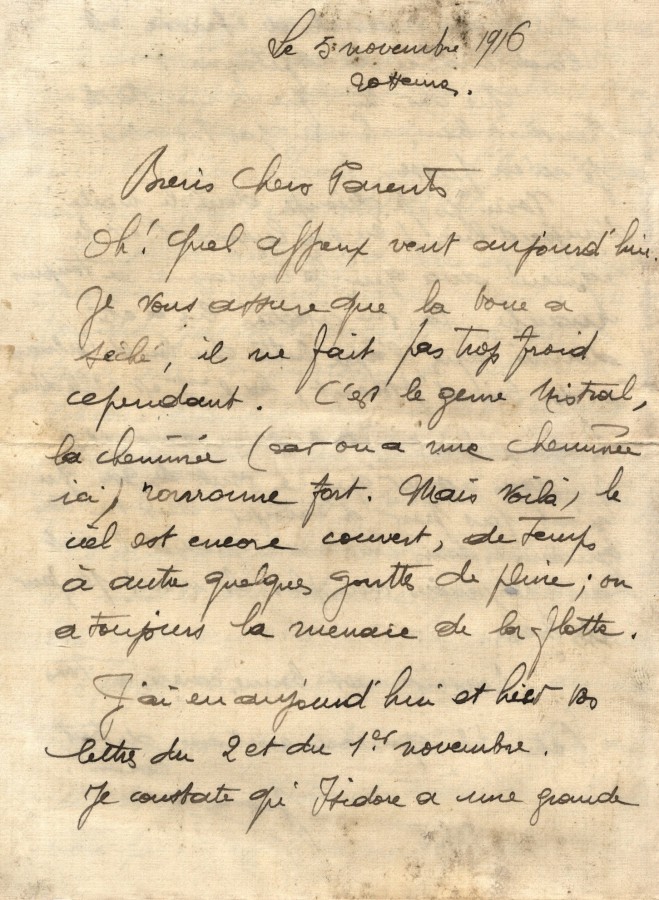 Le 5 novembre 1916
Biens Chers Parents
Oh! Quel affreux vent aujourd'hui.
Je vous assure que la boue a
séché, il ne fait pas trop froid
cependant. C'est le genre Mistral,
la cheminée (car on a une cheminée
ici) ronronne fort. Mais voilà, le
ciel est encore couvert, de temps
à autre quelques gouttes de pluie; on
a toujours la menace de la flotte.
J'ai eu aujourd'hui et hier vos
lettres du 2 et du 1er novembre.
Je constate qu'Isidore a une grande